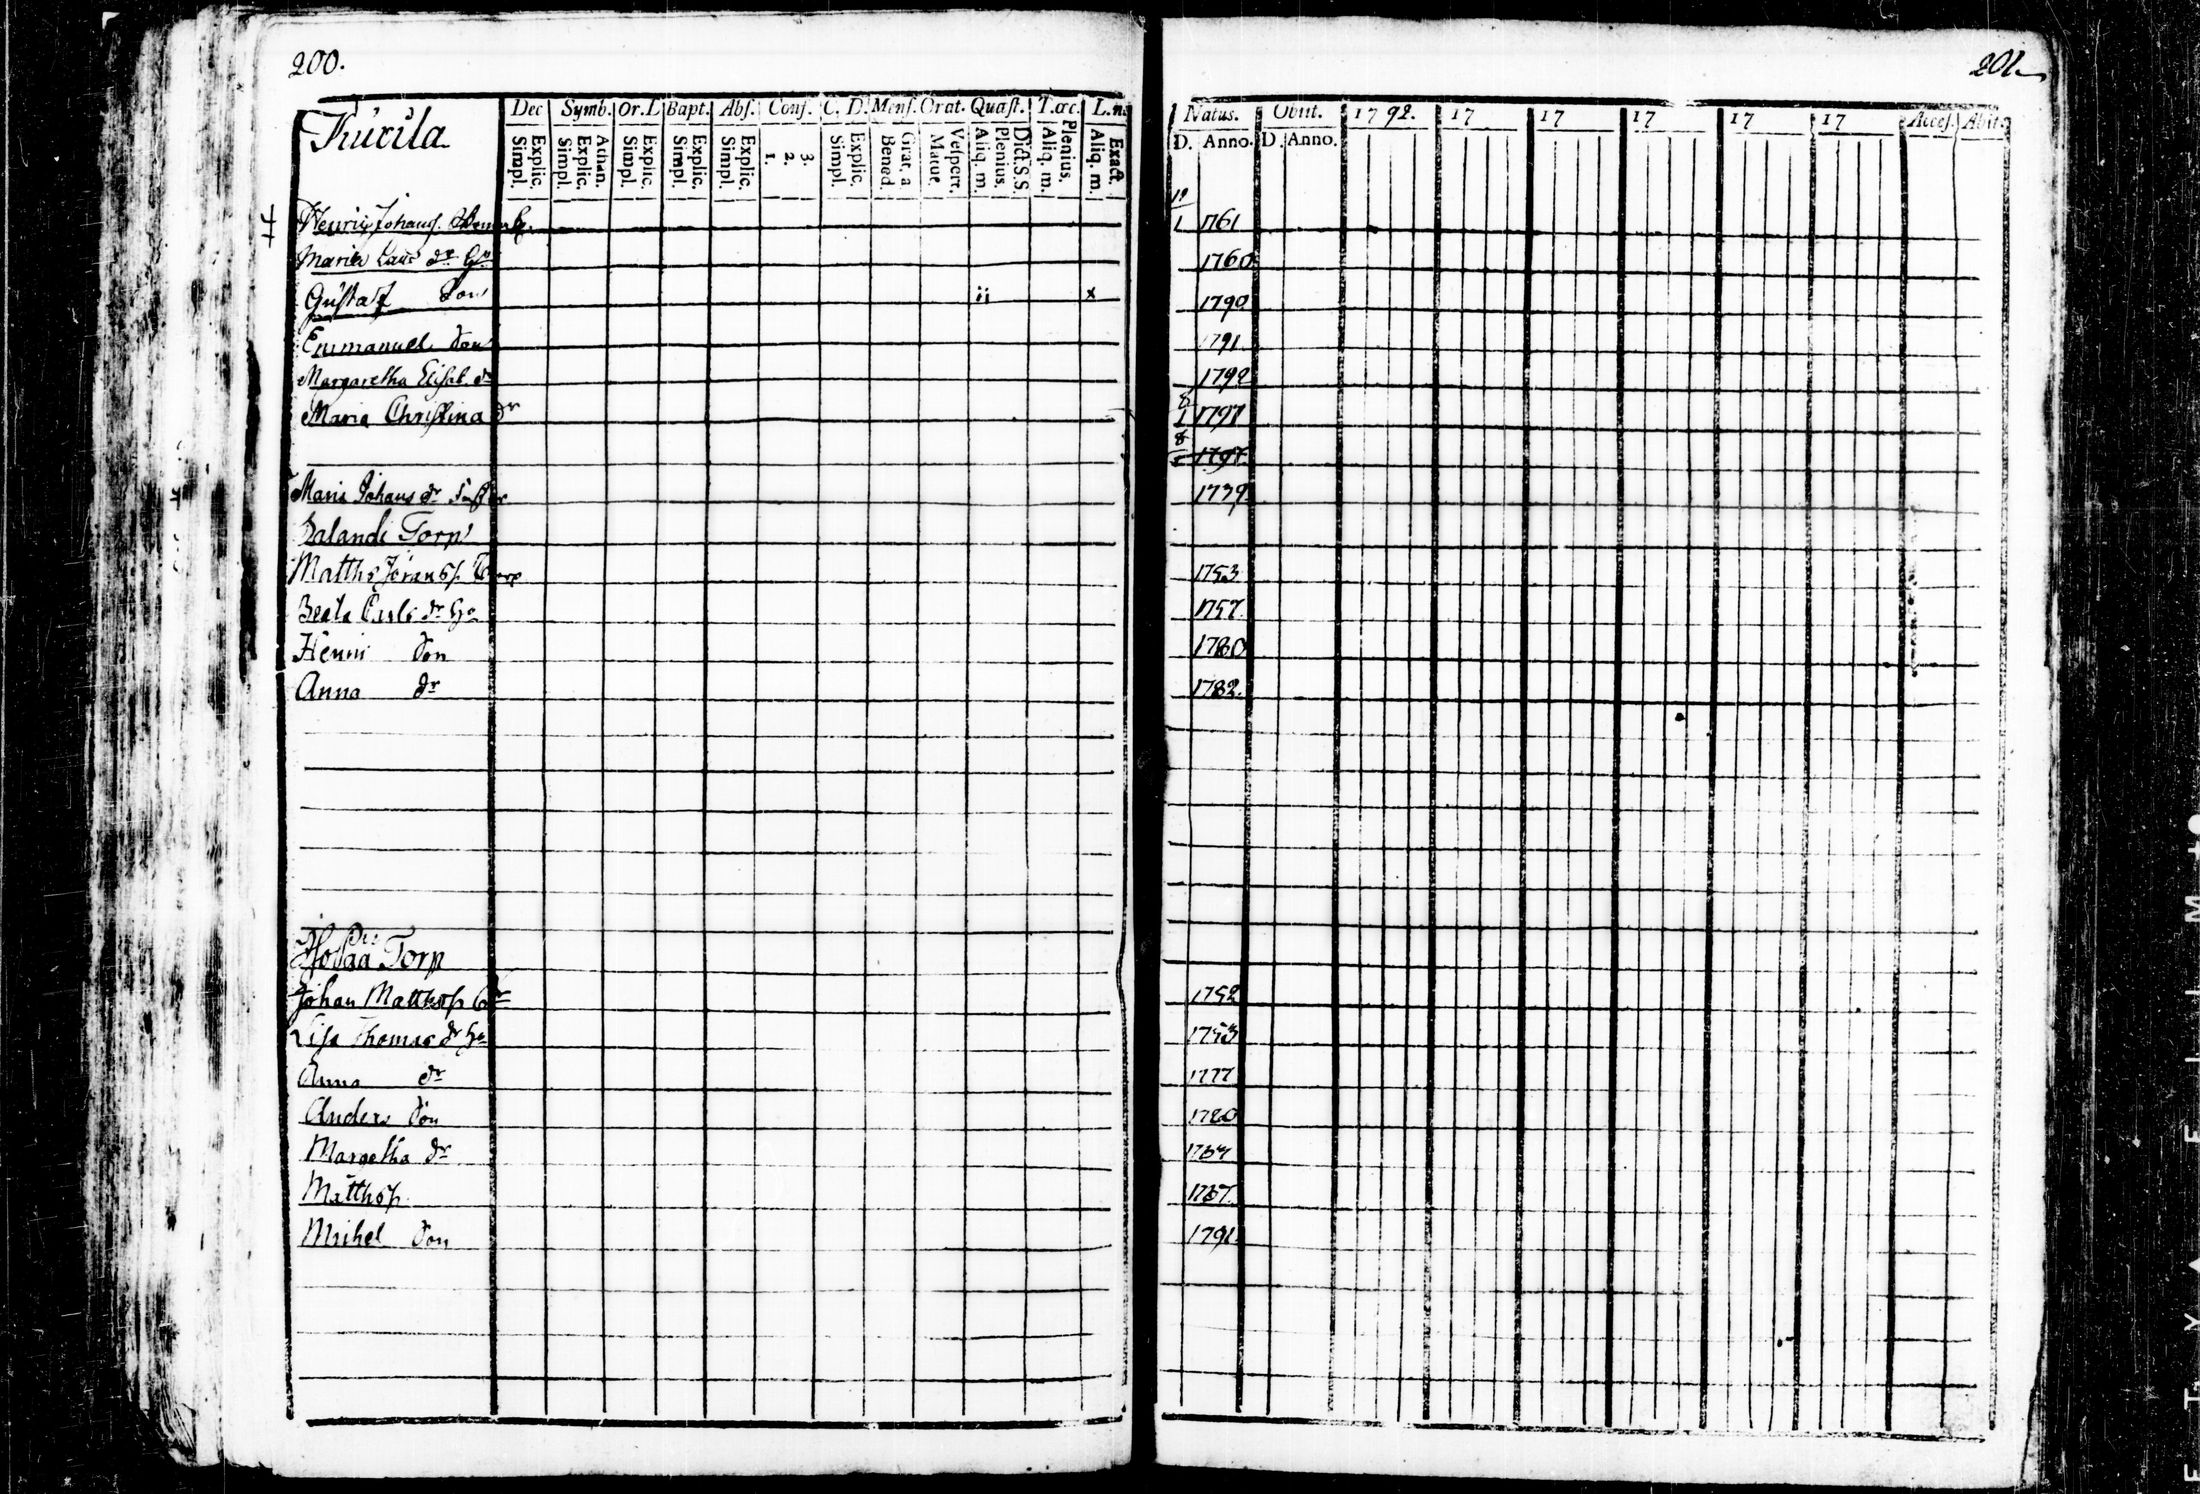 200.
Kurila
Dec Symb. Or.L Bapt. Abs. Conf. C. D. Mens. Orat. Quæst. T.œc. L. n.
Explic. Simpl. Athan. Explic. Simpl. Explic. Simpl. Explic. Simpl. Explic. Simpl. 3. 2. 1. Explic. Simpl. Grat. a Bened. Vespert. Matut. Dict. S.S. Plenius. Aliq. m. Plenius. Aliq. m. Exact. Aliq. m.
Henric Johans.
Maria Lars dr
Gustaf Son ii x
Emmanuel Son
Margaretha Elisab. dr
Maria Christina dr
Maria Johans dr
Torp
Matths Jöransf.
Beata dr
Henric Son
Anna dr
Torp
Johan Matthsf.
Lisa Thomas dr
Anna dr
Anders Son
Margetha dr
Matthsf.
Michel Son
201
Natus. Obiit. 1792. 17 17 17 17 17 Acces. Abiit.
D. Anno. D. Anno.
11
1 1761
1760
1790
1791
1792
8
1 1797
8
1797
1739
1753
1757.
1780
1782.
1752
1753
1777
1780
1787.
1791.